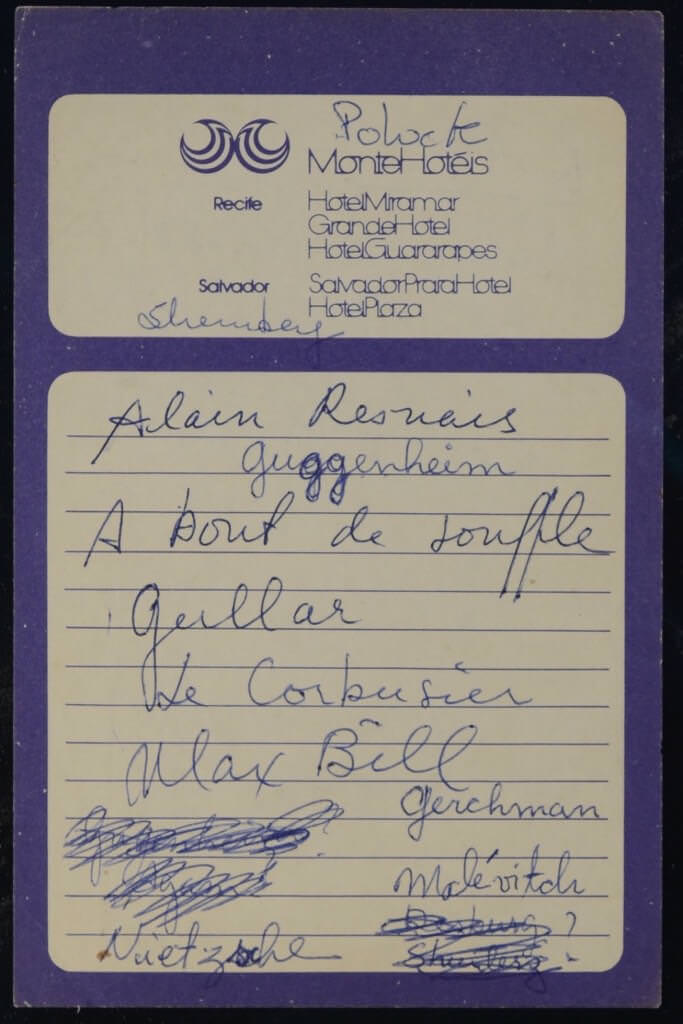 Polock
MonteHotéis
Recife HotelMiramar
GrandeHotel
HotelGuararapes
Salvador SalvadorPraiaHotel
HotelPlaza
Shemberg
Alain Resnais
Guggenheim
A bout de souffle
Gullar
Le Corbusier
Max Bill
Gerchman
Malévitch
?
Nietzsche